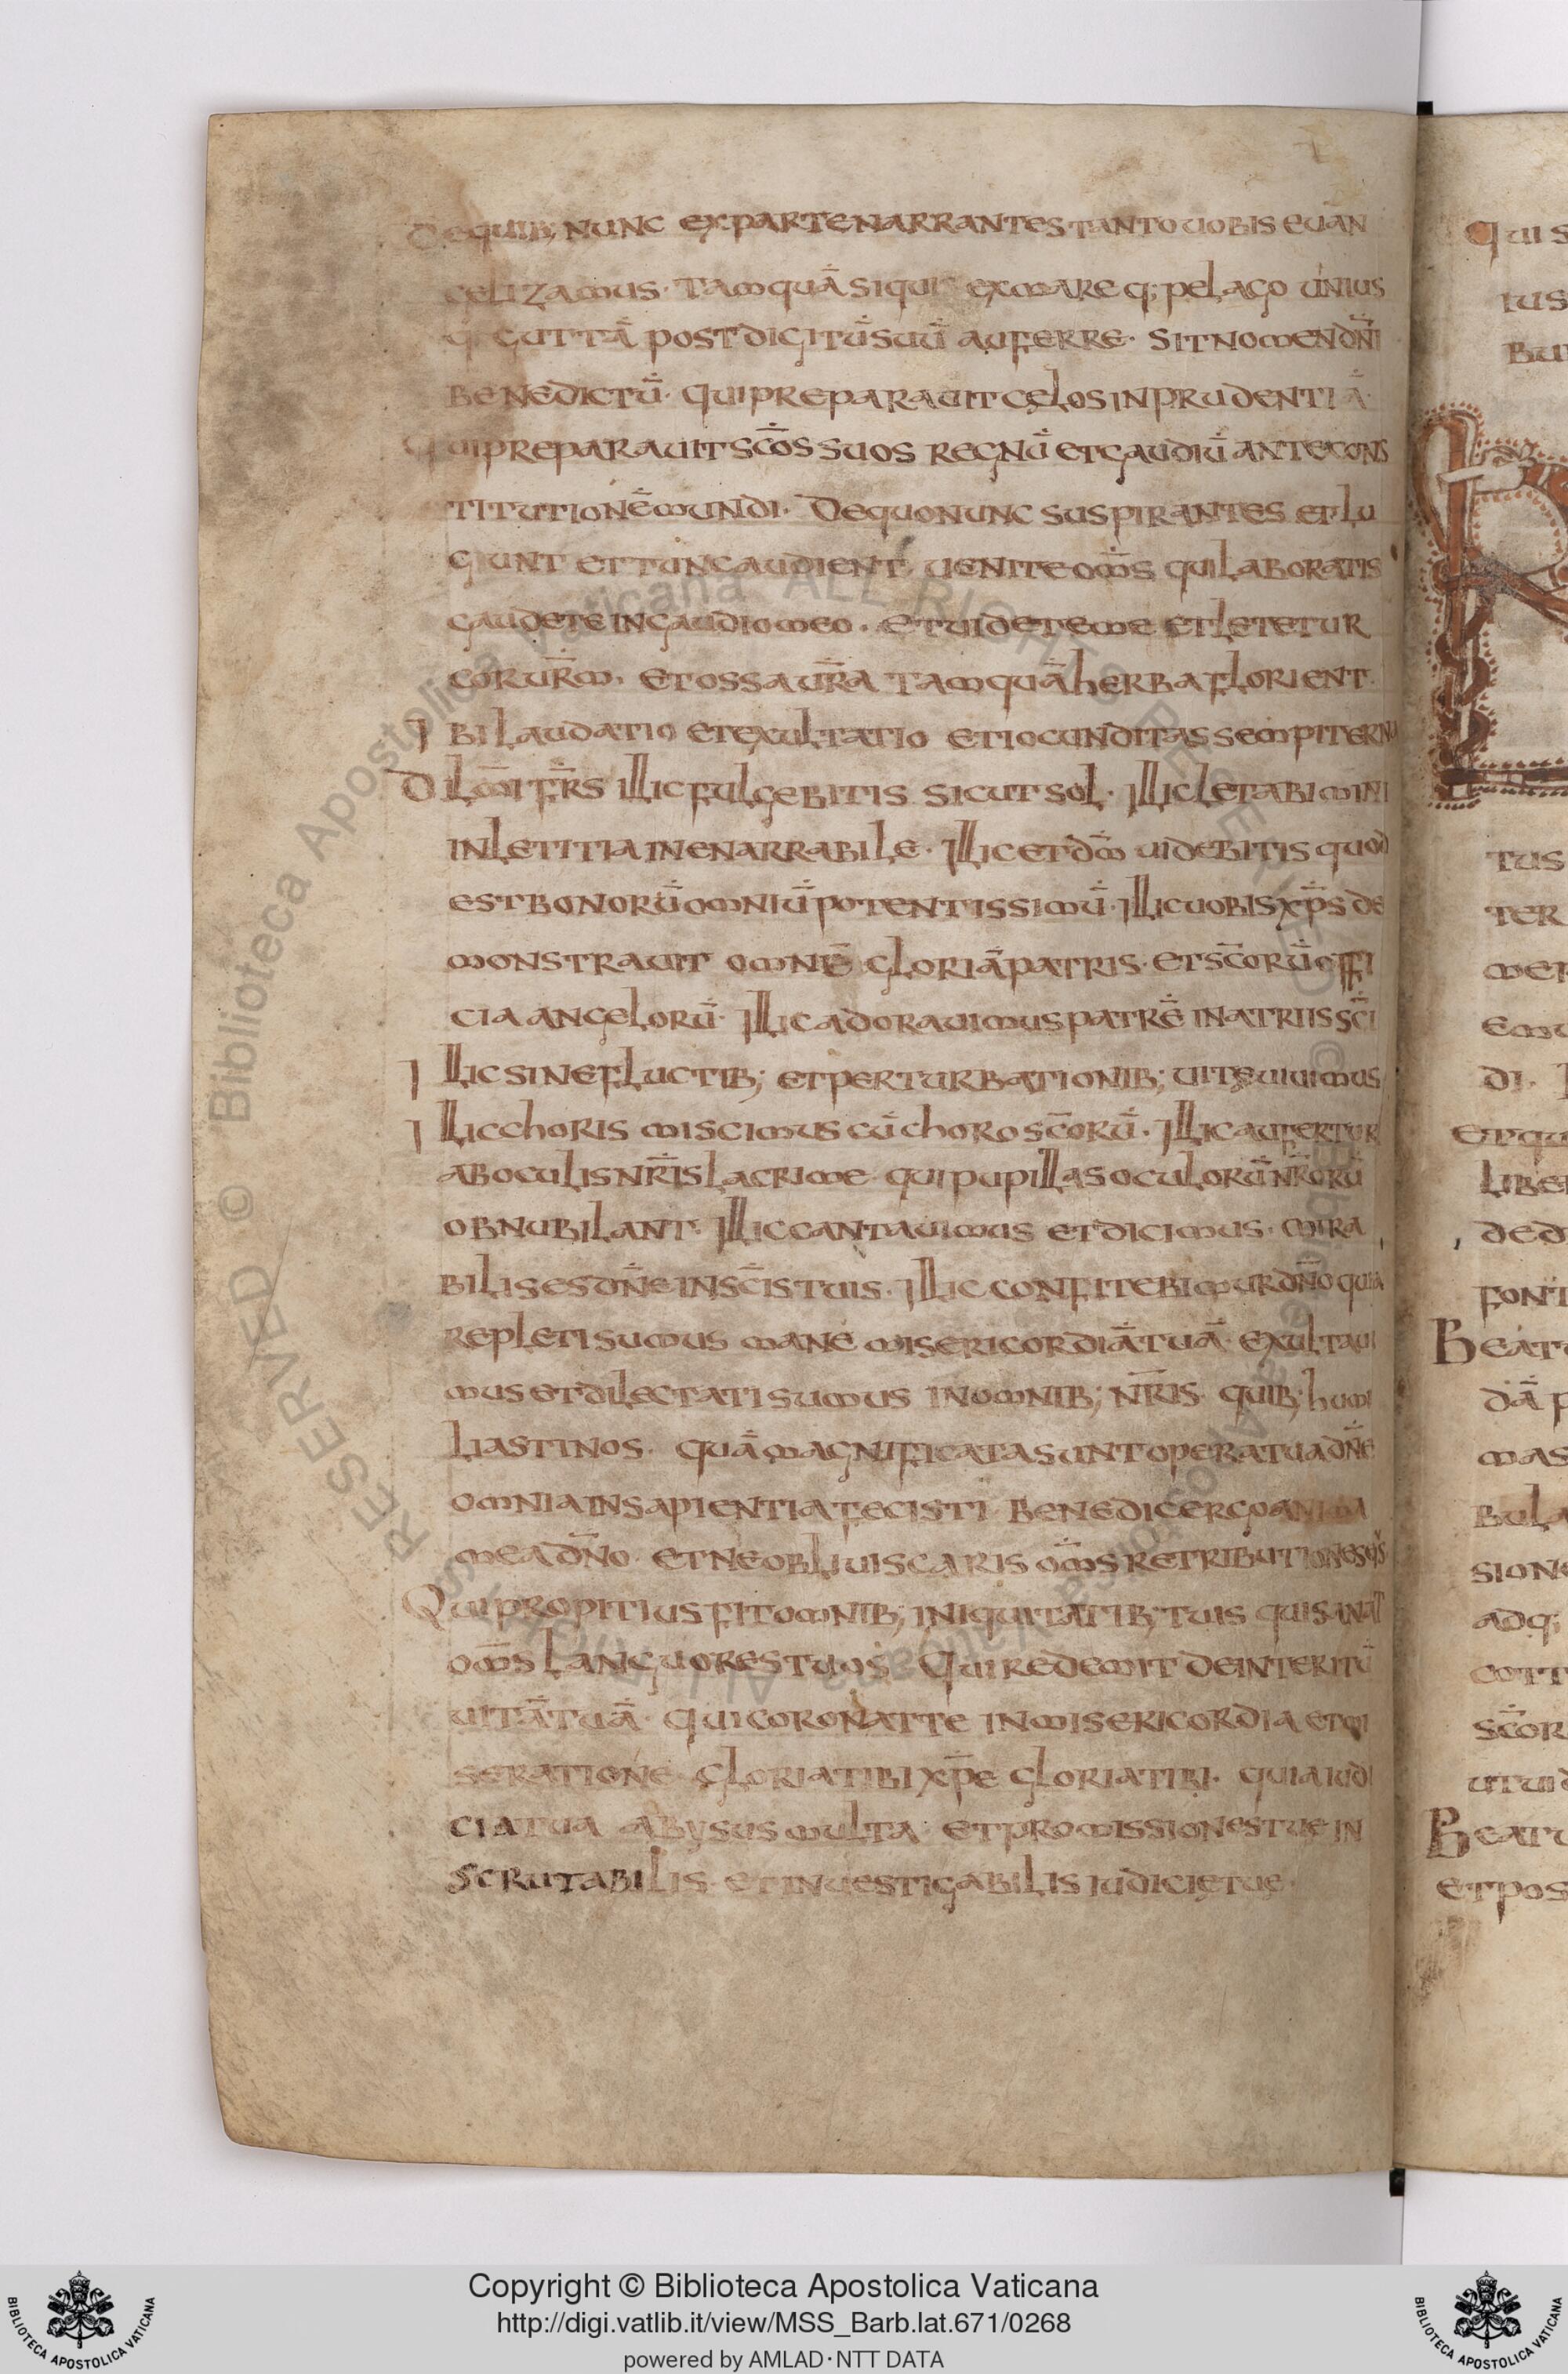 Dequib; nunc ex parte narrantes tanto uobis euan
gelizamus · tamquā siqui ex mare q; pelago unius
guttā post digitū suū auferre · sit nomen dn̄i
benedictū · qui preparauit celos in prudentiā ·
Qui preparauit sc̄os suos regnū et gaudiū ante cons
titutionē mundi · De quo nunc suspirantes et lu
giunt et tunc audient uenite om̄s qui laboratis
gaudete in gaudio meo · et uidete me et letetur
cor ur̄m · et ossa ur̄a tamquā herba florient ·
Ibi laudatio et exultatio et iocunditas sempiterna
Dilm̄i fr̄s illic fulgebitis sicut sol · Illic letabimini
in letitia inenarrabile · Illic et dōm uidebitis quod
est bonorū omniū potentissimū · Illic uobis xp̄s de
monstrauit omnē gloriā patris · et sc̄orū offi
cia angelorū · Illic adorauimus patrē in atriis sc̄i
Illic sine fluctib; et perturbationib; uite uiuimus
Illic choris miscimus cū choro sc̄orū · Illic aufertur
ab oculis nr̄is lacrime · qui pupillas oculorū nr̄orū
obnubilant · Illic cantauimus et dicimus · mira
bilis es dn̄e in sc̄is tuis · Illic confitebimur dn̄o quia
repleti sumus mane misericordiā tuā · exultaui
mus et dilectati sumus in omnib; nr̄is · quib; humi
liasti nos · quā magnificata sunt opera tua dn̄e
omnia in sapientia fecisti benedic ergo anima
mea dn̄o · et ne obliuiscaris om̄s retributiones
Qui propitius fit omnib; iniquitatib; tuis qui sanat
om̄s languores tuos · Qui redemit de interitū
uitā tuā · qui coronat te in misericordia et mi
seratione gloria tibi xp̄e gloria tibi · quia iudi
cia tua abysus multa · et promissiones tue in
scrutabilis · et inuestigabilis iudicie tue ·
Qui s
ius
bu
tus
ter
mer
emu
di ·
Et qu
libe
ded
font
Beatu
dā p
mas
bula
sion
adq;
cott
sc̄or
ut uid
Beatu
et pos
RESERVED © Biblioteca Apostolica Vaticana ALL RIGHTS RESERVED © Biblioteca Apostolica Vaticana ALL RIGHTS
Copyright © Biblioteca Apostolica Vaticana
http://digi.vatlib.it/view/MSS_Barb.lat.671/0268
powered by AMLAD·NTT DATA
BIBLIOTECA APOSTOLICA VATICANA
BIBLIOTECA APOSTOLICA VATICANA